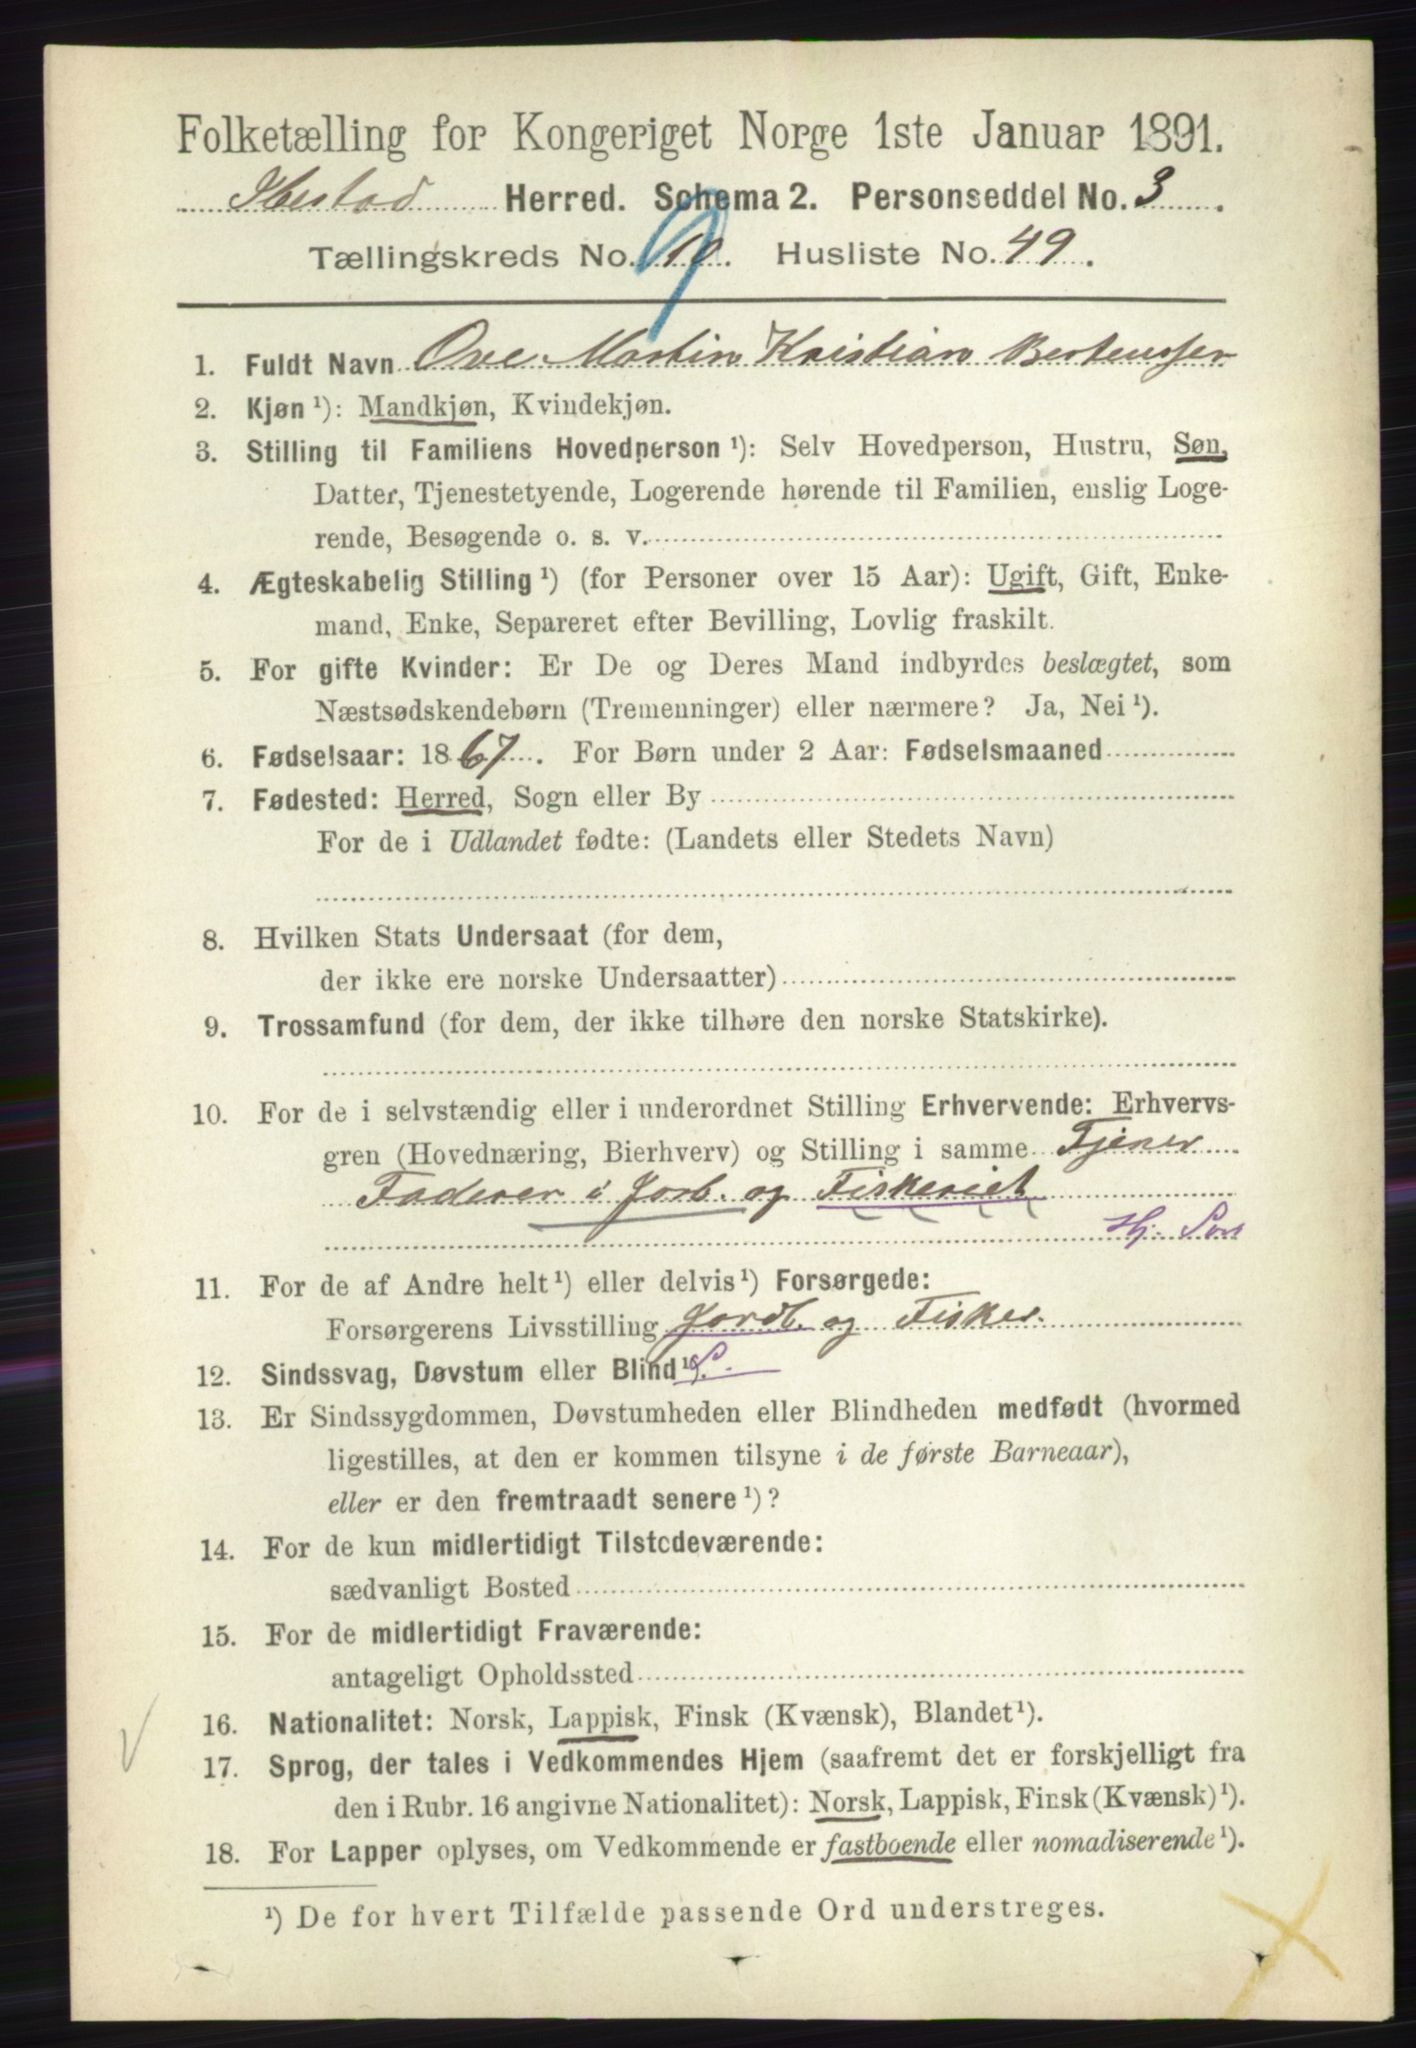 Folketælling for Kongeriget Norge 1ste Januar 1891.
Ibestad Herred. Schema 2. Personseddel No. 3.
Tællingskreds No. 10. 9 Husliste No. 49.
1. Fuldt Navn Ove Martin Kristian Bertenssen
2. Kjøn ¹): Mandkjøn, Kvindekjøn.
3. Stilling til Familiens Hovedperson ¹): Selv Hovedperson, Hustru, Søn,
Datter, Tjenestetyende, Logerende hørende til Familien, enslig Loge-
rende, Besøgende o. s. v.
4. Ægteskabelig Stilling ¹) (for Personer over 15 Aar): Ugift, Gift, Enke-
mand, Enke, Separeret efter Bevilling, Lovlig fraskilt.
5. For gifte Kvinder: Er De og Deres Mand indbyrdes beslægtet, som
Næstsødskendebørn (Tremenninger) eller nærmere? Ja, Nei ¹).
6. Fødselsaar: 1867. For Børn under 2 Aar: Fødselsmaaned
7. Fødested: Herred, Sogn eller By
For de i Udlandet fødte: (Landets eller Stedets Navn)
8. Hvilken Stats Undersaat (for dem,
der ikke ere norske Undersaatter)
9. Trossamfund (for dem, der ikke tilhøre den norske Statskirke).
10. For de i selvstændig eller i underordnet Stilling Erhvervende: Erhvervs-
gren (Hovednæring, Bierhverv) og Stilling i samme Tjener
Faderen i Jorb. og Fiskeriet
Hj. Søn
11. For de af Andre helt ¹) eller delvis ¹) Forsørgede:
Forsørgerens Livsstilling Jordb. og Fisker.
12. Sindssvag, Døvstum eller Blind ¹). S.
13. Er Sindssygdommen, Døvstumheden eller Blindheden medfødt (hvormed
ligestilles, at den er kommen tilsyne i de første Barneaar),
eller er den fremtraadt senere ¹)?
14. For de kun midlertidigt Tilstedeværende:
sædvanligt Bosted
15. For de midlertidigt Fraværende:
antageligt Opholdssted
16. Nationalitet: Norsk, Lappisk, Finsk (Kvænsk), Blandet ¹).
17. Sprog, der tales i Vedkommendes Hjem (saafremt det er forskjelligt fra
den i Rubr. 16 angivne Nationalitet): Norsk, Lappisk, Finsk (Kvænsk) ¹).
18. For Lapper oplyses, om Vedkommende er fastboende eller nomadiserende ¹).
¹) De for hvert Tilfælde passende Ord understreges.